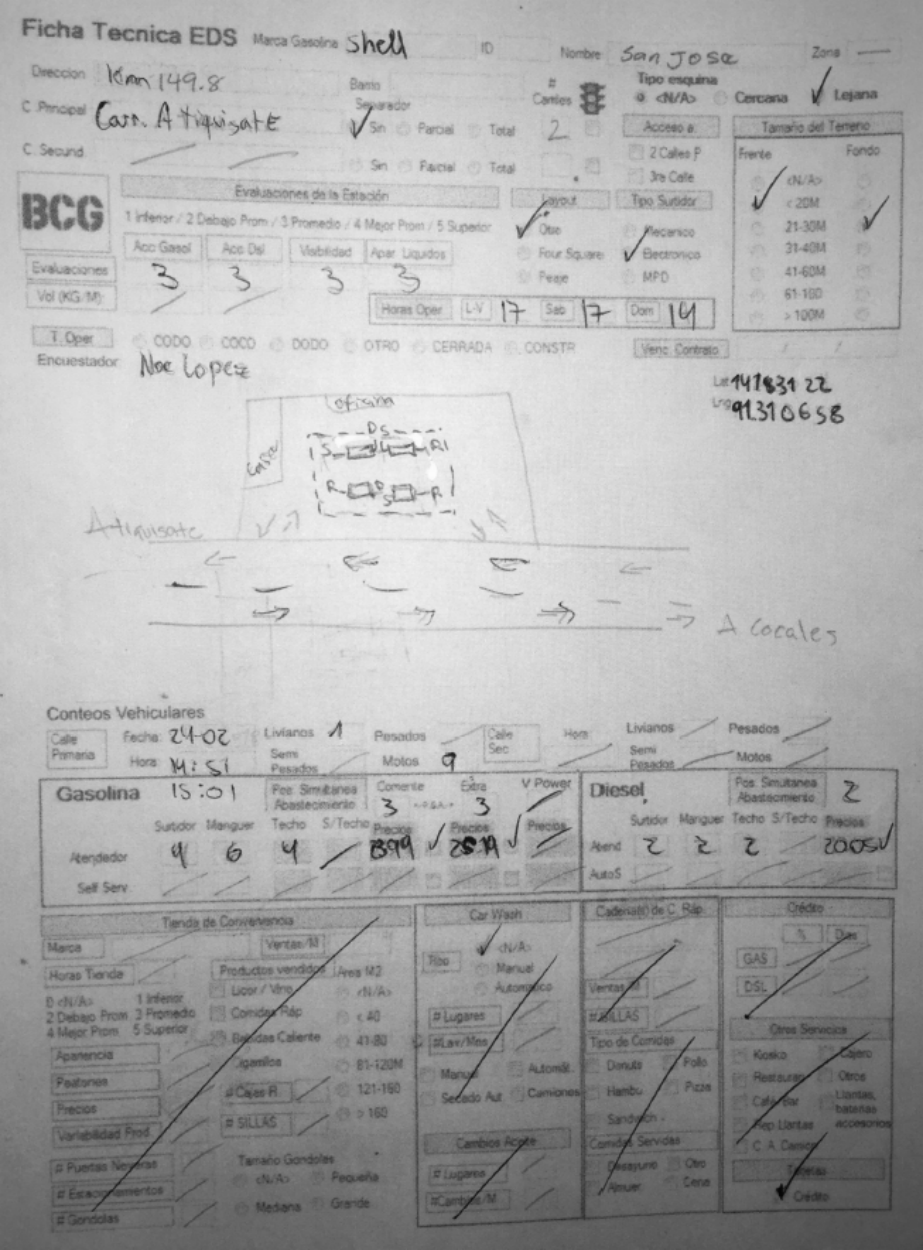 Ficha Tecnica EDS Marca Gasolina Shell ID Nombre San Jose Zona —
Direccion Km 149.8 Barrio # Carriles Tipo esquina <N/A> Cercana Lejana
C. Principal Carr. A Tiquisate Separador Sin Parcial Total 2 Acceso a: Tamaño del Terreno
C. Secund Sin Parcial Total 2 Calles P Frente Fondo
3ra Calle <N/A>
BCG Evaluaciones de la Estación Layout Tipo Surtidor < 20M
1 Inferior / 2 Debajo Prom / 3 Promedio / 4 Mejor Prom / 5 Superior Otro Mecanico 21-30M
Acc Gasol Acc Dsl Visibilidad Apar Liquidos Four Square Electronico 31-40M
Evaluaciones 3 3 3 3 Peaje MPD 41-60M
Vol (KG/M): Horas Oper L-V 17 Sab 17 Dom 14 61-100
> 100M
T. Oper CODO COCO DODO OTRO CERRADA CONSTR Venc Contrato / /
Encuestador Noe Lopez
Lat 14783122
Lng 91.310658
oficina
DS
S R
R D S R
A tiquisate
A Cocales
Conteos Vehiculares
Calle Primaria Fecha: 24-02 Livianos 1 Pesados Calle Sec Hora Livianos Pesados
Hora Semi Pesados Motos 9 Semi Pesados Motos
Gasolina 15:01 Pos Simultanea Abastecimiento Extra V Power Diesel Pos Simultanea Abastecimiento 2
3 3
Surtidor Manguer Techo S/Techo Precios Precios Precios Surtidor Manguer Techo S/Techo Precios
Atendador 4 6 4 Atend 2 2 2 2005
Self Serv AutoS
Tienda de Conveniencia Car Wash Cadena(s) de C. Ráp. Crédito
Marca Ventas/M <N/A> % Dias
Horas Tienda Productos vendidos Area M2 Tipo Manual GAS
0 <N/A> 1 Inferior Licor / Vino <N/A> Automatico Ventas/M DSL
2 Debajo Prom 3 Promedio Comidas Ráp < 40 # Lugares # SILLAS
4 Mejor Prom 5 Superior Bebidas Caliente 41-80 #Lav/Mes Tipo de Comidas Otros Servicios
Apariencia Cigarrillos 81-120M Manual Automát. Donuts Pollo Kiosko Cajero
Peatones # Cajas R. 121-160 Secado Aut Camiones Hambu Pizza Restauran Otros
Precios # SILLAS > 160 Sandwich Cafe Bar Llantas, baterias accesorios
Variabilidad Prod Cambios Aceite Comidas Servidas Rep Llantas
# Puertas Neveras Tamaño Gondolas # Lugares Desayuno Otro C. A. Camion
# Estacionamientos <N/A> Pequeña #Cambios/M Almuer Cena Tarjetas
# Gondolas Mediana Grande Crédito